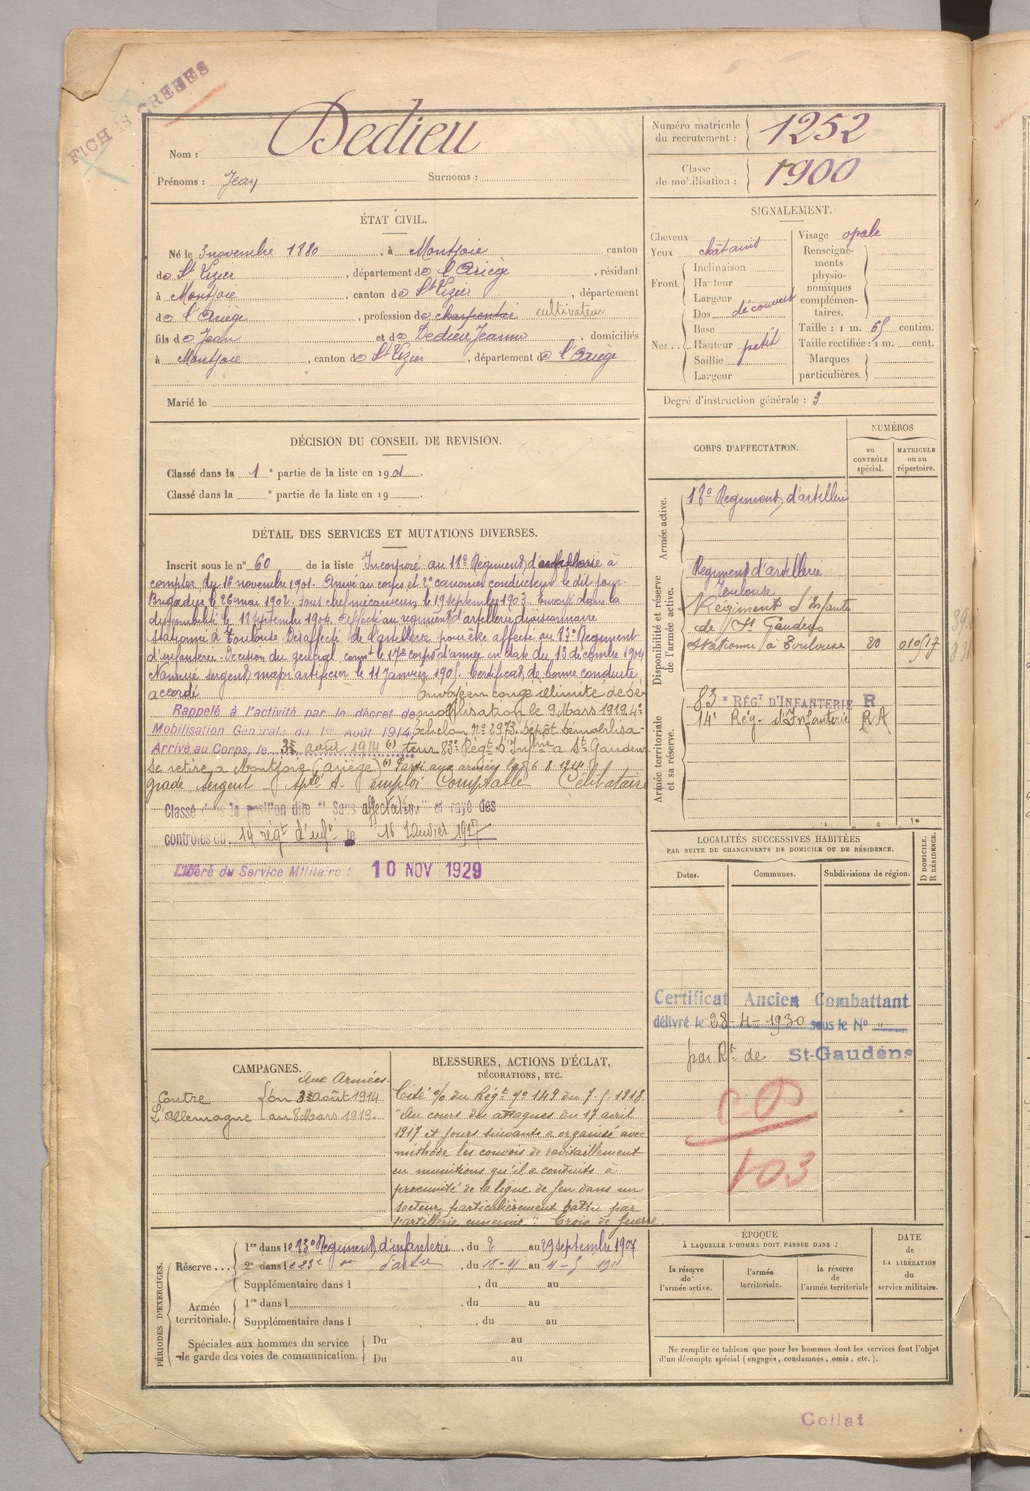 FICHES CRÉÉES
Nom : Dedieu
Prénoms : Jean Surnoms :
Numéro matricule du recrutement : 1252
Classe de mobilisation : 1900
ÉTAT CIVIL.
Né le 3 novembre 1880, à Montjoie canton
de St Lizier, département de l'Ariège, résidant
à Montjoie, canton de St Lizier, département
de l'Ariège, profession de charpentier cultivateur
fils de Jean et de Dedieu Jeanne domiciliés
à Montjoie, canton de St Lizier, département de l'Ariège
Marié le
SIGNALEMENT.
Cheveux
Yeux châtains
Front. Inclinaison
Hauteur
Largeur
Nez. Dos découvert
Base
Hauteur petit
Saillie
Largeur
Visage ovale
Renseignements physionomiques complémentaires.
Taille : 1 m. 65 centim.
Taille rectifiée : 1 m. cent.
Marques particulières.
Degré d'instruction générale : 3
DÉCISION DU CONSEIL DE REVISION.
Classé dans la 1e partie de la liste en 1901.
Classé dans la e partie de la liste en 190 .
DÉTAIL DES SERVICES ET MUTATIONS DIVERSES.
Inscrit sous le n° 60 de la liste Incorporé au 18e Régiment d'artillerie à
compter du 16 novembre 1901. Arrivé au corps et 2e canonnier conducteur le dit jour.
Brigadier le 26 mai 1902. Sous chef mécanicien le 19 septembre 1903. Envoyé dans la
disponibilité le 18 septembre 1904. Affecté au régiment d'artillerie divisionnaire
stationné à Toulouse. Désaffecté de l'artillerie pour être affecté au 83e Régiment
d'infanterie. Décision du général comt le 17e corps d'armée en date du 13 décembre 1904
Nommé sergent, major artificier le 11 Janvier 1905. Certificat de bonne conduite
accordé
Envoyé en congé illimité de dé-
Rappelé à l'activité par le décret de mobilisation le 9 Mars 1919. 4e
Mobilisation Générale du 1er Août 1914, échelon N° 2973. dépôt démobilisa-
Arrivé au Corps, le 3 août 1914 (1) teur 83e Régt d'Infrie à St Gaudens
Se retire à Montjoie (Ariège) (1) Parti aux armées le 6 8 1914
grade Sergent emploi Comptable Célibataire
Classé dans la position dite "Sans affectation" et rayé des
contrôles du 14 régt d'inf. le 16 Janvier 1927
Libéré du Service Militaire : 10 NOV 1929
CORPS D'AFFECTATION.
NUMÉROS
au CONTRÔLE spécial.
MATRICULE ou au répertoire.
Armée active.
18e Régiment d'artillerie
Disponibilité et réserve de l'armée active.
Régiment d'artillerie
Toulouse
Régiment d'Infante
de St Gaudens
Stationné à Toulouse 20 010/17
Armée territoriale et sa réserve.
83e RÉGT D'INFANTERIE R
14e Rég. d'Infanterie RA
LOCALITÉS SUCCESSIVES HABITÉES
PAR SUITE DE CHANGEMENTS DE DOMICILE OU DE RÉSIDENCE.
Dates. Communes. Subdivisions de région. D DOMICILE. R RÉSIDENCE.
Certificat Ancien Combattant
délivré le 28-4-1930 sous le N° "
par Rt de St-Gaudens
103
CAMPAGNES.
Aux Armées.
Contre L'Allemagne
du 3 août 1914
au 8 Mars 1919.
BLESSURES, ACTIONS D'ÉCLAT,
DÉCORATIONS, ETC.
Cité O/ du Régt N° 149 du 7.5.1918.
"Au cours des attaques du 17 avril
1917 et jours suivants a organisé avec
méthode les convois de ravitaillement
en munitions qu'il a conduits à
proximité de la ligne de feu dans un
secteur particulièrement battu par
l'artillerie ennemie." Croix de guerre.
PÉRIODES D'EXERCICES.
Réserve
1re dans le 83e Régiment d'infanterie, du 2 au 29 septembre 1907
2e dans le 23e d'artie, du 18-4 au 4-5 1911
Supplémentaire dans l , du au
Armée territoriale.
1re dans l , du au
Supplémentaire dans l , du au
Spéciales aux hommes du service de garde des voies de communication.
Du au
Du au
ÉPOQUE
À LAQUELLE L'HOMME DOIT PASSER DANS :
la réserve de l'armée active.
l'armée territoriale.
la réserve de l'armée territoriale
DATE de LA LIBÉRATION du service militaire.
Ne remplir ce tableau que pour les hommes dont les services font l'objet
d'un décompte spécial (engagés, condamnés, omis, etc.).
Collat